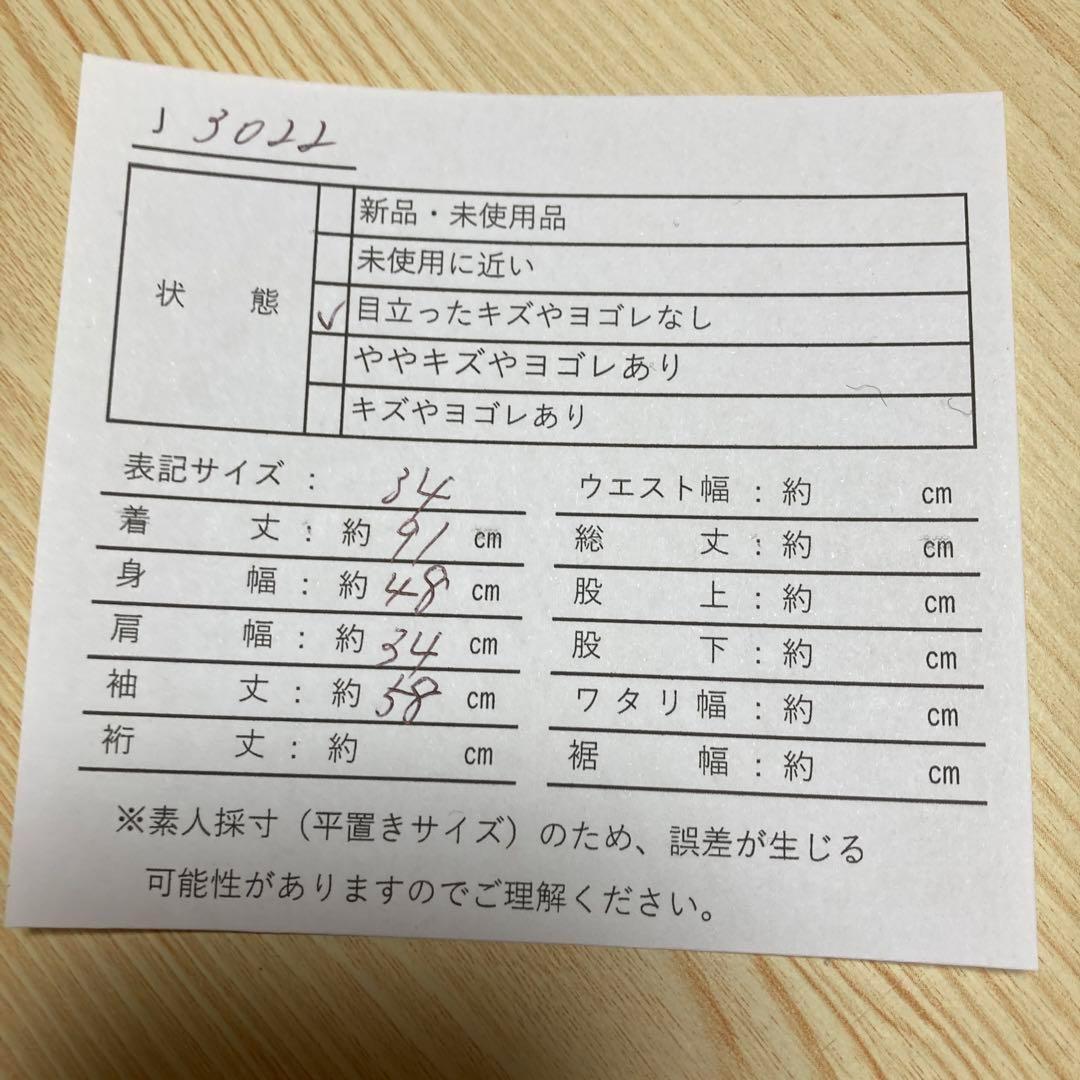 J 3022
状態
新品・未使用品
未使用に近い
✓ 目立ったキズやヨゴレなし
ややキズやヨゴレあり
キズやヨゴレあり
表記サイズ : 34
着丈 : 約 91 cm
身幅 : 約 48 cm
肩幅 : 約 34 cm
袖丈 : 約 58 cm
裄丈 : 約 cm
ウエスト幅 : 約 cm
総丈 : 約 cm
股上 : 約 cm
股下 : 約 cm
ワタリ幅 : 約 cm
裾幅 : 約 cm
※素人採寸（平置きサイズ）のため、誤差が生じる
可能性がありますのでご理解ください。